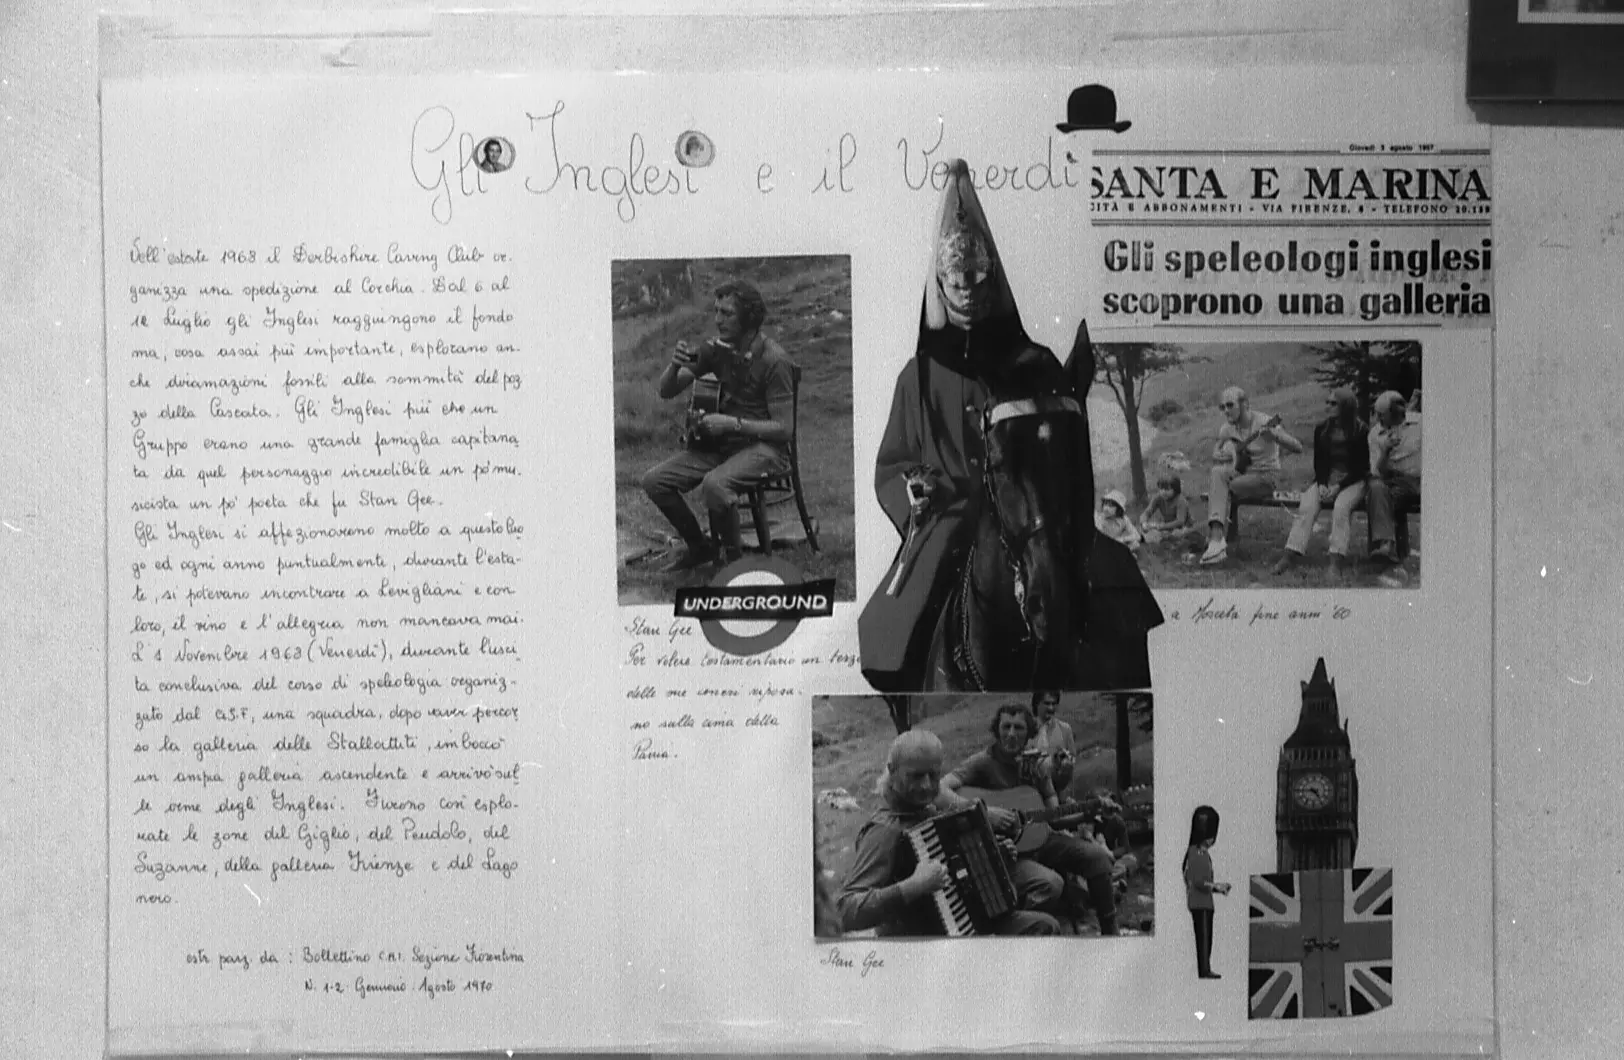 Gli Inglesi e il Venerdì
Giovedì 3 agosto 1967
SANTA E MARINA
CITÀ E ABBONAMENTI - VIA FIRENZE, - TELEFONO
Gli speleologi inglesi
scoprono una galleria
Nell'estate 1968 il Derbishire Caving Club or-
ganizza una spedizione al Corchia. Dal 6 al
12 Luglio gli Inglesi raggiungono il fondo
ma, cosa assai più importante, esplorano an-
che diramazioni fossili alla sommità del poz
zo della Cascata. Gli Inglesi più che un
Gruppo erano una grande famiglia capitana
ta da quel personaggio incredibile un po' mu-
sicista un po' poeta che fu Stan Gee.
Gli Inglesi si affezionarono molto a questo luo
go ed ogni anno puntualmente, durante l'esta-
te, si potevano incontrare a Levigliani e con
loro, il vino e l'allegria non mancava mai.
L'1 Novembre 1968 (Venerdì), durante l'usci
ta conclusiva del corso di speleologia organiz-
zato dal G.S.F, una squadra, dopo aver percor
so la galleria delle Stallattiti, imboccò
un ampia galleria ascendente e arrivò sul
le orme degli Inglesi. Furono così esplo-
rate le zone del Giglio, del Pendolo, del
Suzanne, della galleria Firenze e del Lago
nero.
estr. parz. da : Bollettino C.A.I. Sezione Fiorentina
N. 1-2 Gennaio Agosto 1970
UNDERGROUND
Stan Gee
Per volere testamentario un terzo
delle sue ceneri riposa-
no sulla cima della
Pania.
a Mosceta fine anni '60
Stan Gee